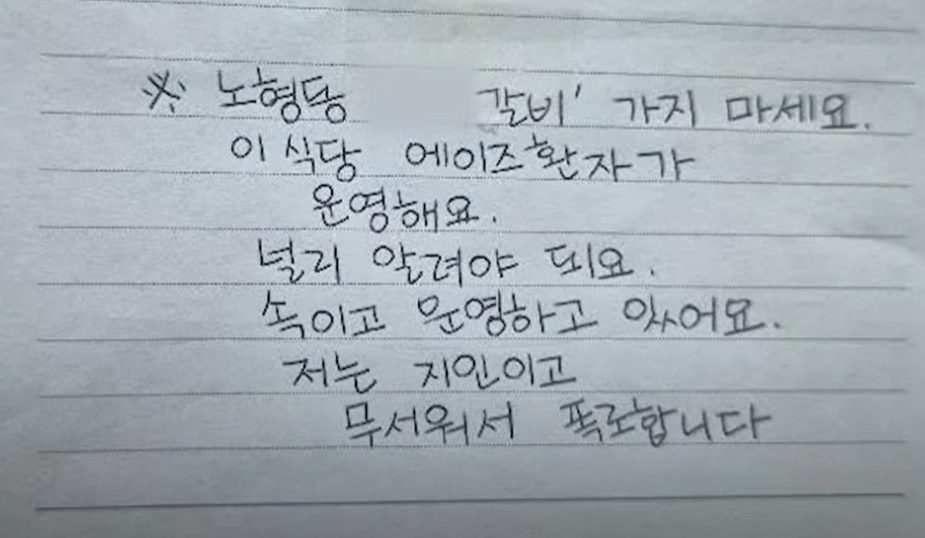 ※ 노형동 갈비' 가지 마세요.
이 식당 에이즈환자가
운영해요.
널리 알려야 되요.
속이고 운영하고 있어요.
저는 지인이고
무서워서 폭로합니다